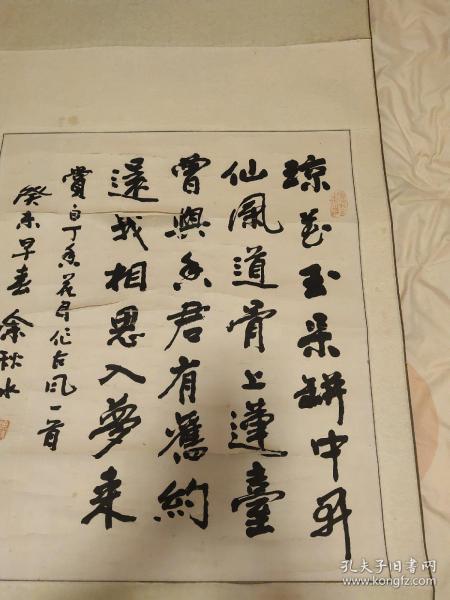 琼花玉朵鉼中开
仙風道骨上蓬臺
曾與香君有舊約
還我相思入夢来
赏白丁香花君作古风一首
癸未早春 余秋水
孔夫子旧书网
www.kongfz.com